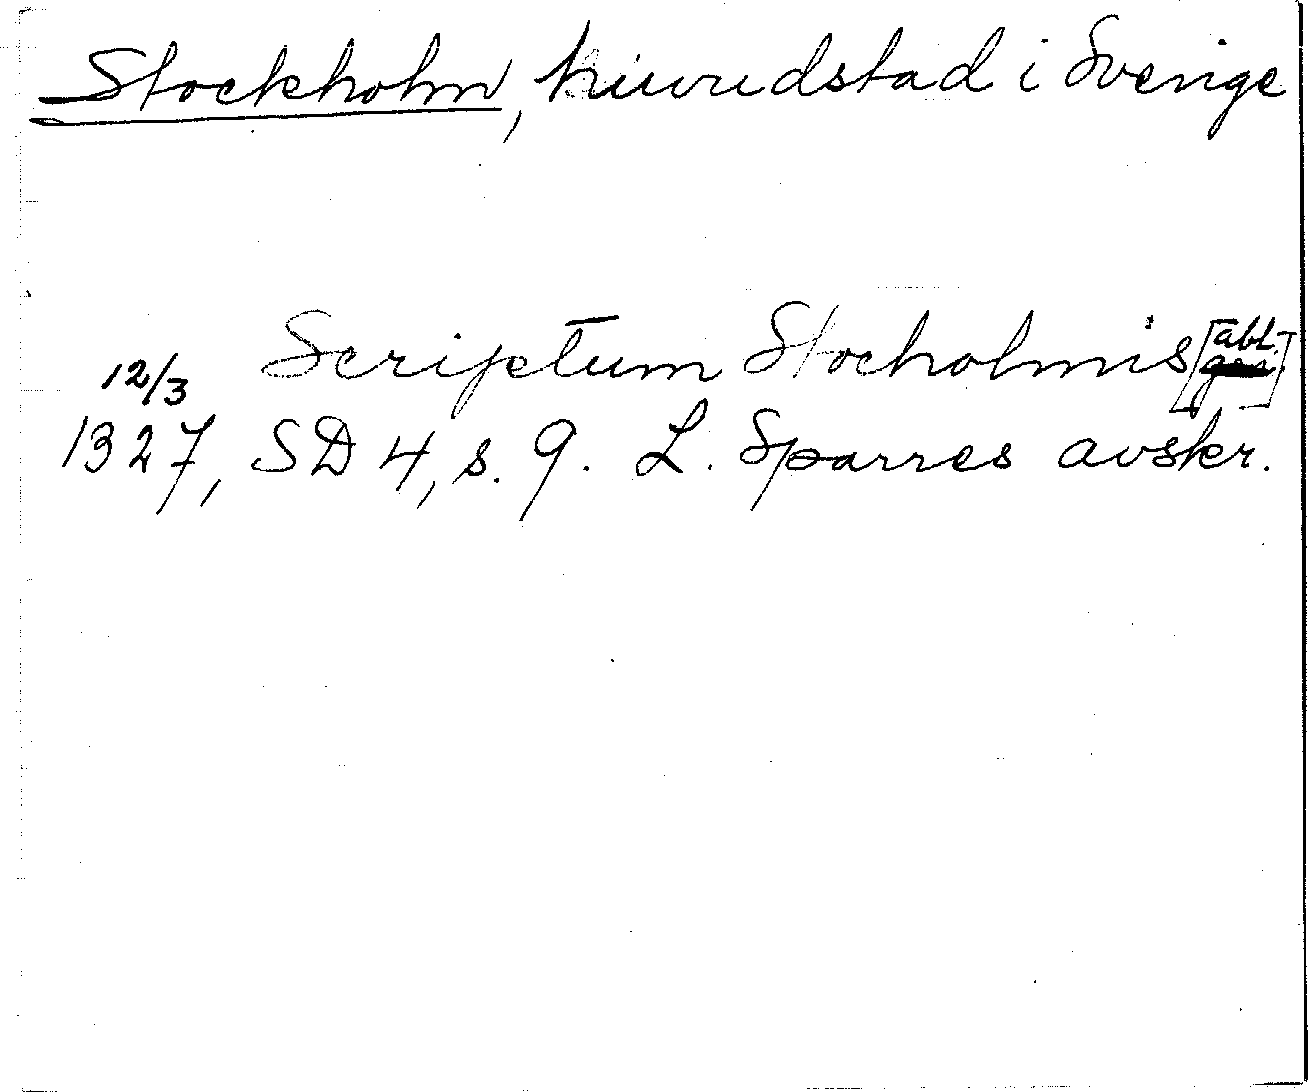 Stockholm, huvudstad i Sverige
Scriptum Stocholmis [abl.]
12/3
1327, SD 4, s. 9. L. Sparres avskr.